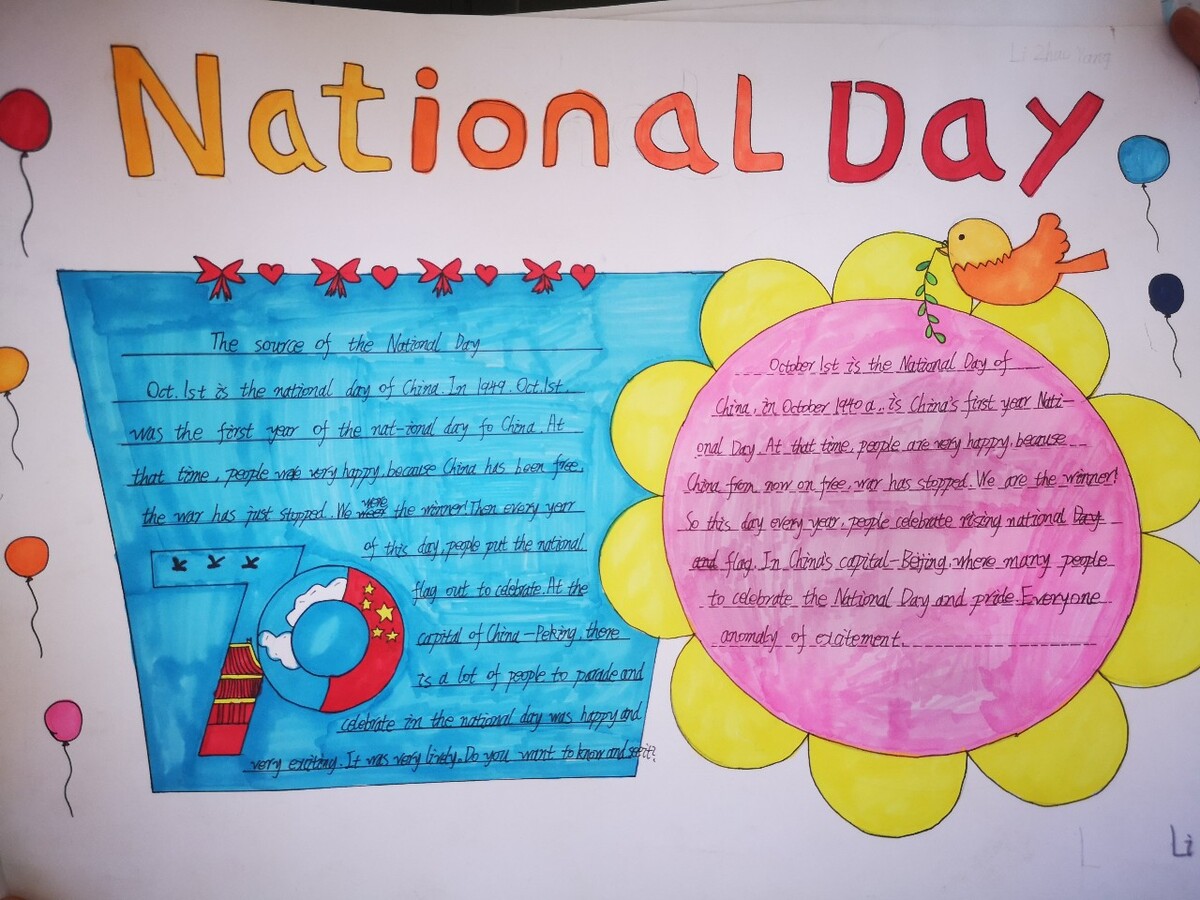 National Day
Li Zhuo Yang
The source of the National Day
Oct.1st is the national day of China.In 1949.Oct.1st
was the first year of the nat-ional day fo China.At
that time, people were very happy, because China has been free,
the war has just stopped.We were the winner!Then every year
of this day,people put the national
flag out to celebrate.At the
capital of China-Peking, there
is a lot of people to parade and
celebrate in the national day was happy and
very exciting.It was very lively.Do you want to know and see it?
70
October 1st is the National Day of
China, in October 1940 a.. is China's first year Nati-
onal Day.At that time, people are very happy, because
China from now on free, war has stopped.We are the winner!
So this day every year, people celebrate rising national Day
and flag.In China's capital-Beijing, where many people
to celebrate the National Day and pride.Everyone
anomaly of excitement.
L
Li